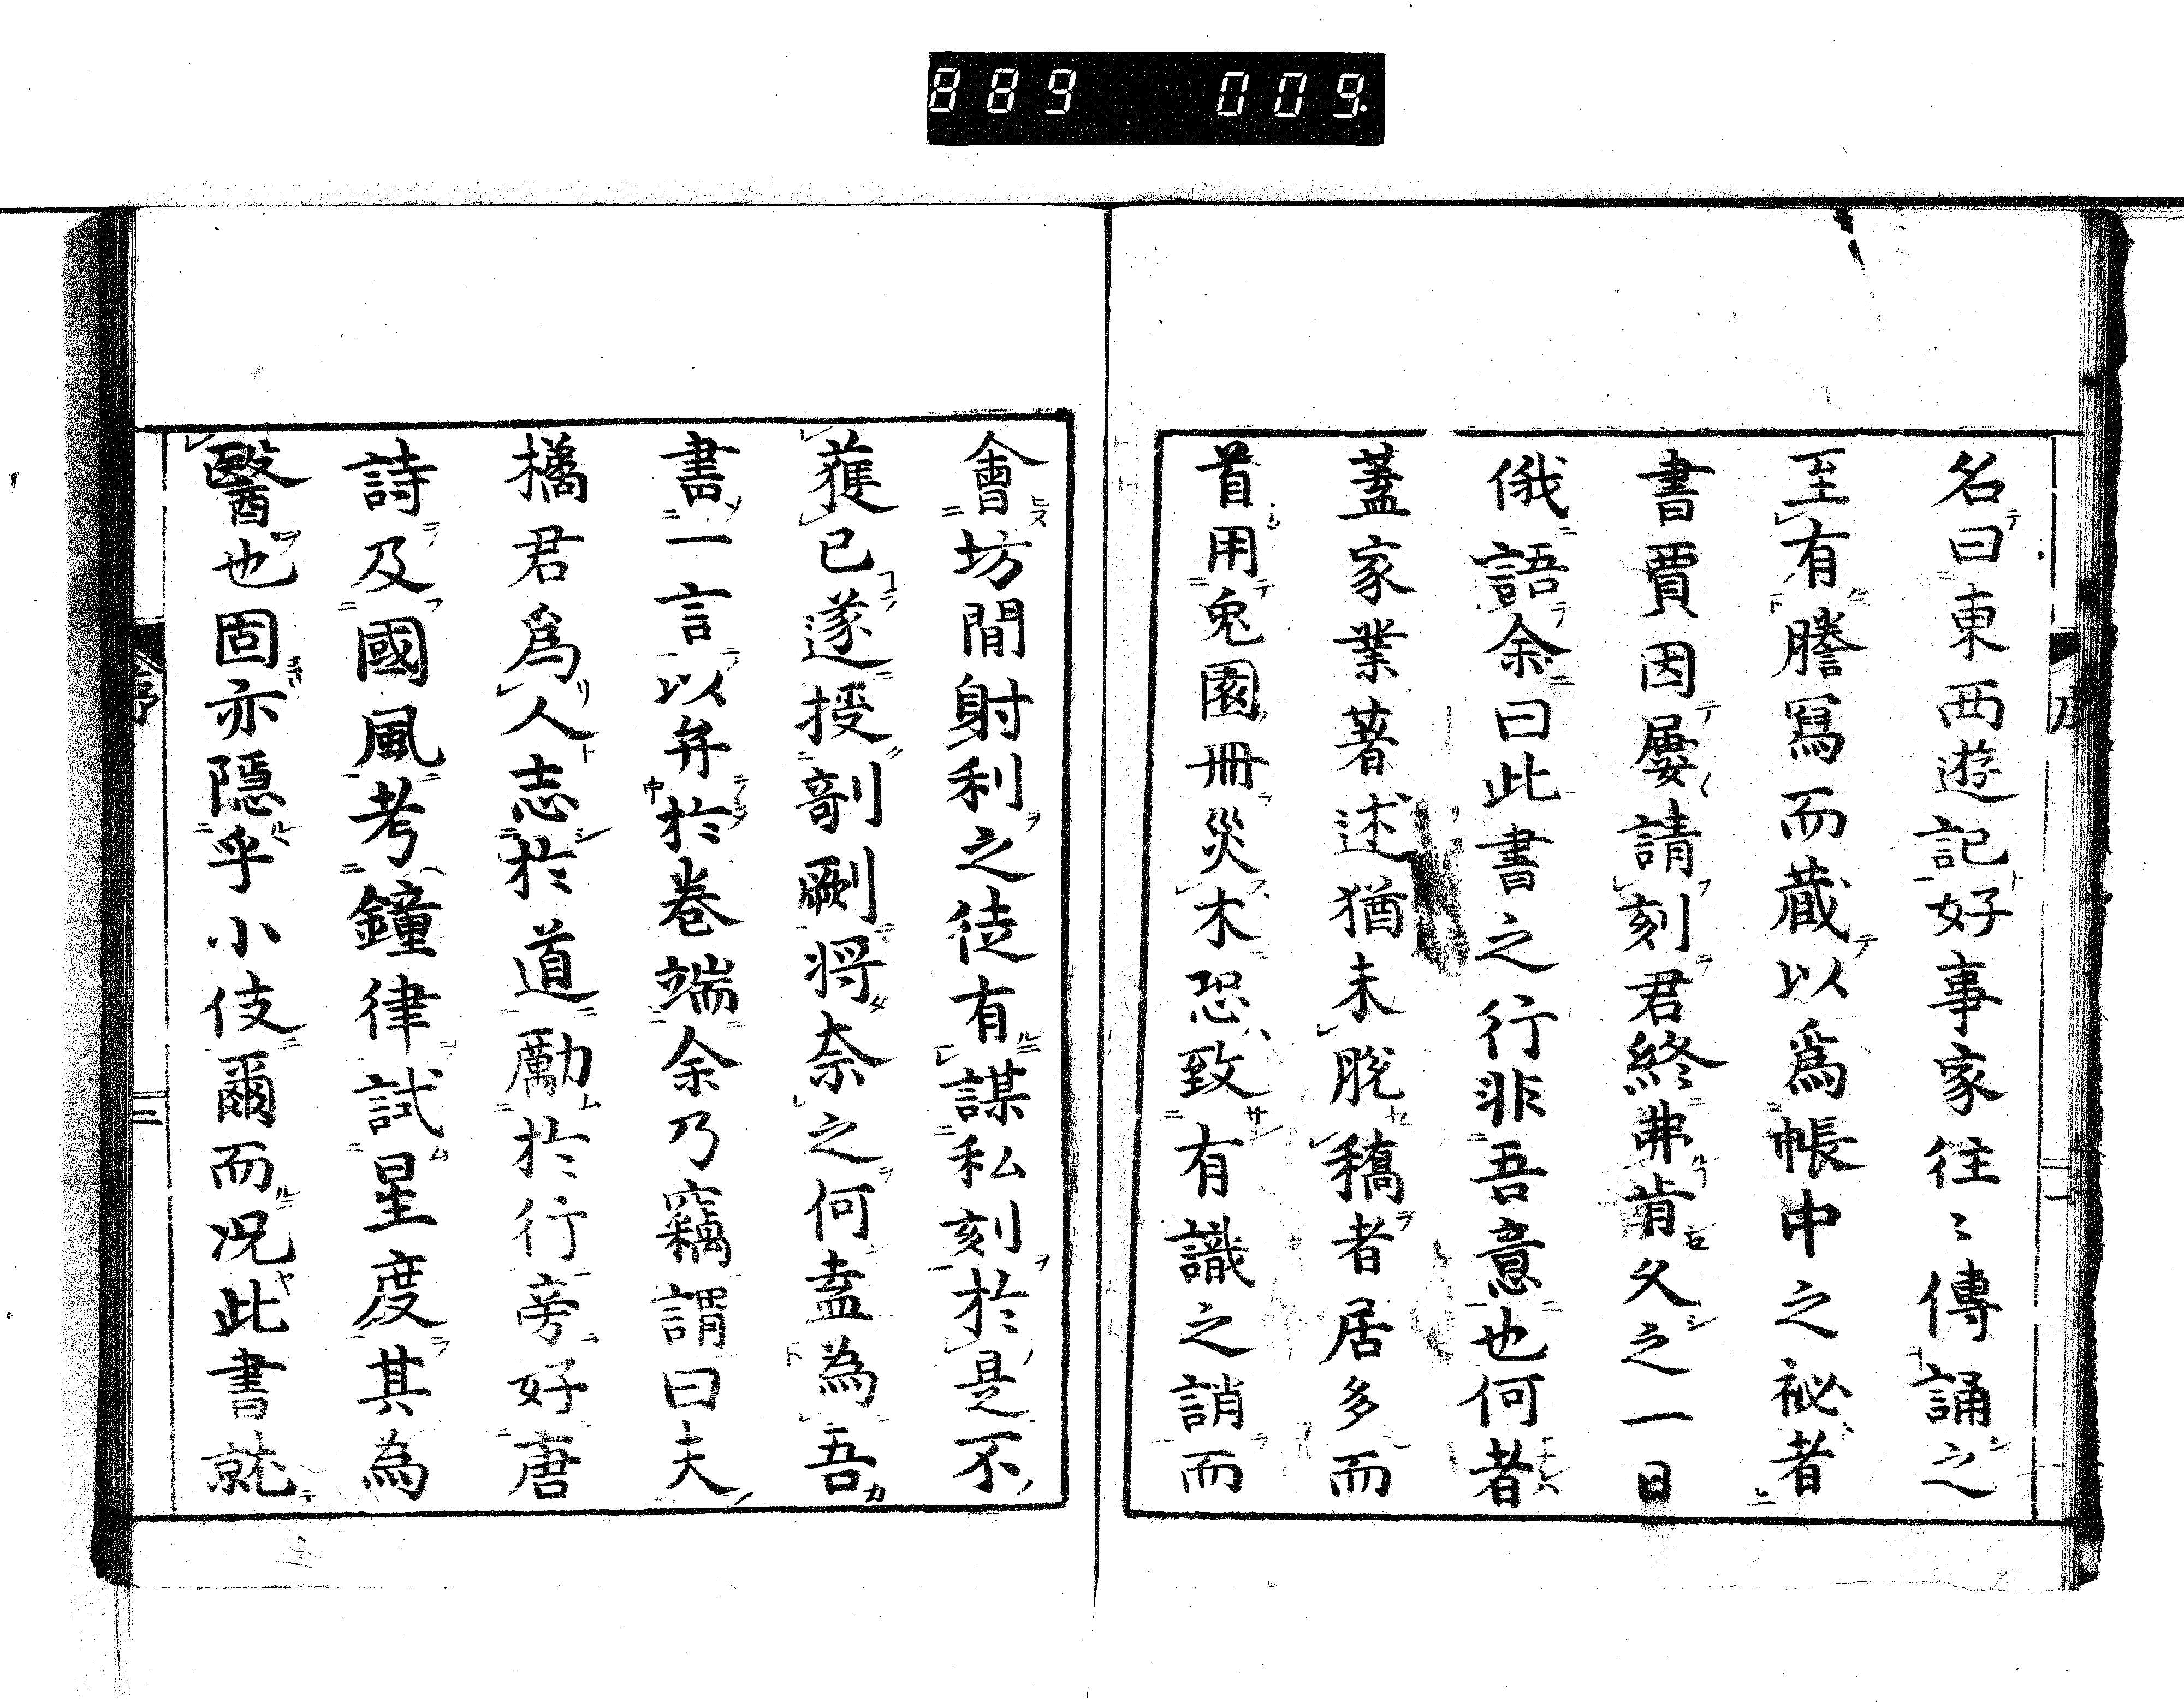 889 009
名曰東西遊記好事家往〻傳誦之
至有謄寫而藏以爲帳中之祕者
書賈因屢請刻君終弗肯久之一日
俄語余曰此書之行非吾意也何者
蓋家業著述猶未脫稿者居多而
首用兔園冊災木恐致有識之誚而
會坊間射利之徒有謀私刻於是不
獲已遂授剞劂將奈之何盍為吾
書一言以弁於卷端余乃竊謂曰夫
橘君爲人志於道勵於行旁好唐
詩及國風考鐘律試星度其為
醫也固亦隱乎小伎爾而況此書就
序
二